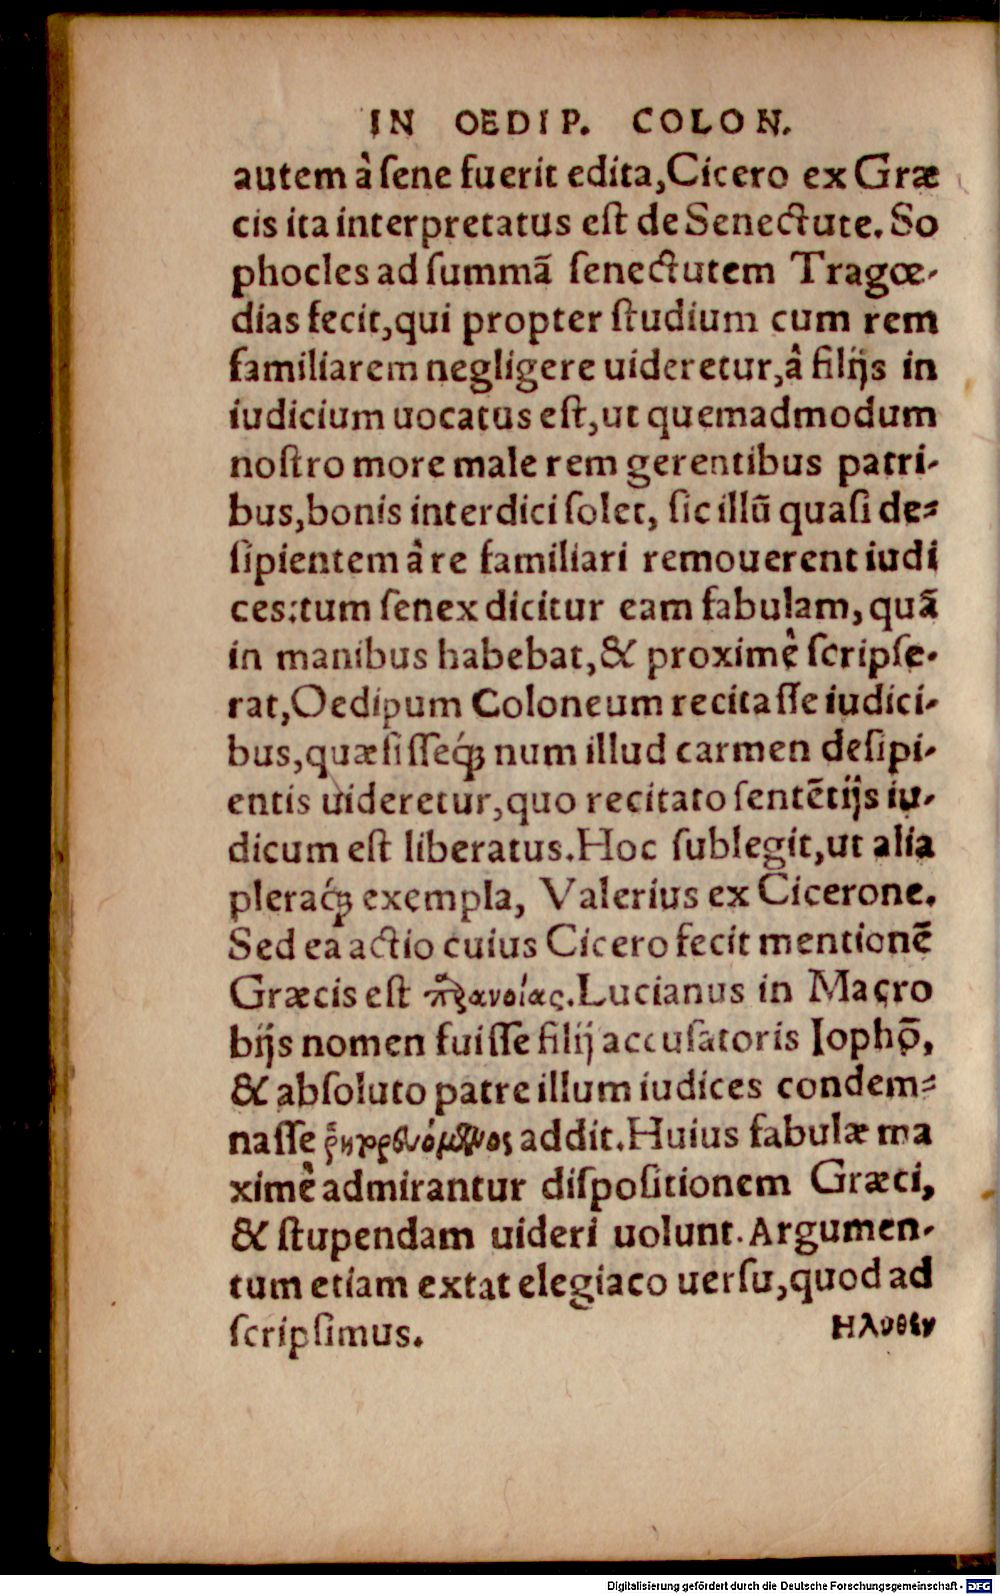 IN OEDIP. COLON.
autem à sene fuerit edita, Cicero ex Græ
cis ita interpretatus est de Senectute. So
phocles ad summā senectutem Tragœ-
dias fecit, qui propter studium cum rem
familiarem negligere uideretur, â filijs in
iudicium uocatus est, ut quemadmodum
nostro more male rem gerentibus patri-
bus, bonis interdici solet, sic illū quasi de-
sipientem à re familiari remouerent iudi
ces: tum senex dicitur eam fabulam, quā
in manibus habebat, & proximè scripse-
rat, Oedipum Coloneum recitasse iudici-
bus, quæsisseq́ꝫ num illud carmen desipi-
entis uideretur, quo recitato sentētijs iu-
dicum est liberatus. Hoc sublegit, ut alia
pleraq́ꝫ exempla, Valerius ex Cicerone.
Sed ea actio cuius Cicero fecit mentionē
Græcis est παρανοίας. Lucianus in Macro
bijs nomen fuisse filij accusatoris Iophō,
& absoluto patre illum iudices condem-
nasse addit. Huius fabulæ ma
ximè admirantur dispositionem Græci,
& stupendam uideri uolunt. Argumen-
tum etiam extat elegiaco uersu, quod ad
scripsimus. Ηλυθεν
Digitalisierung gefördert durch die Deutsche Forschungsgemeinschaft - DFG